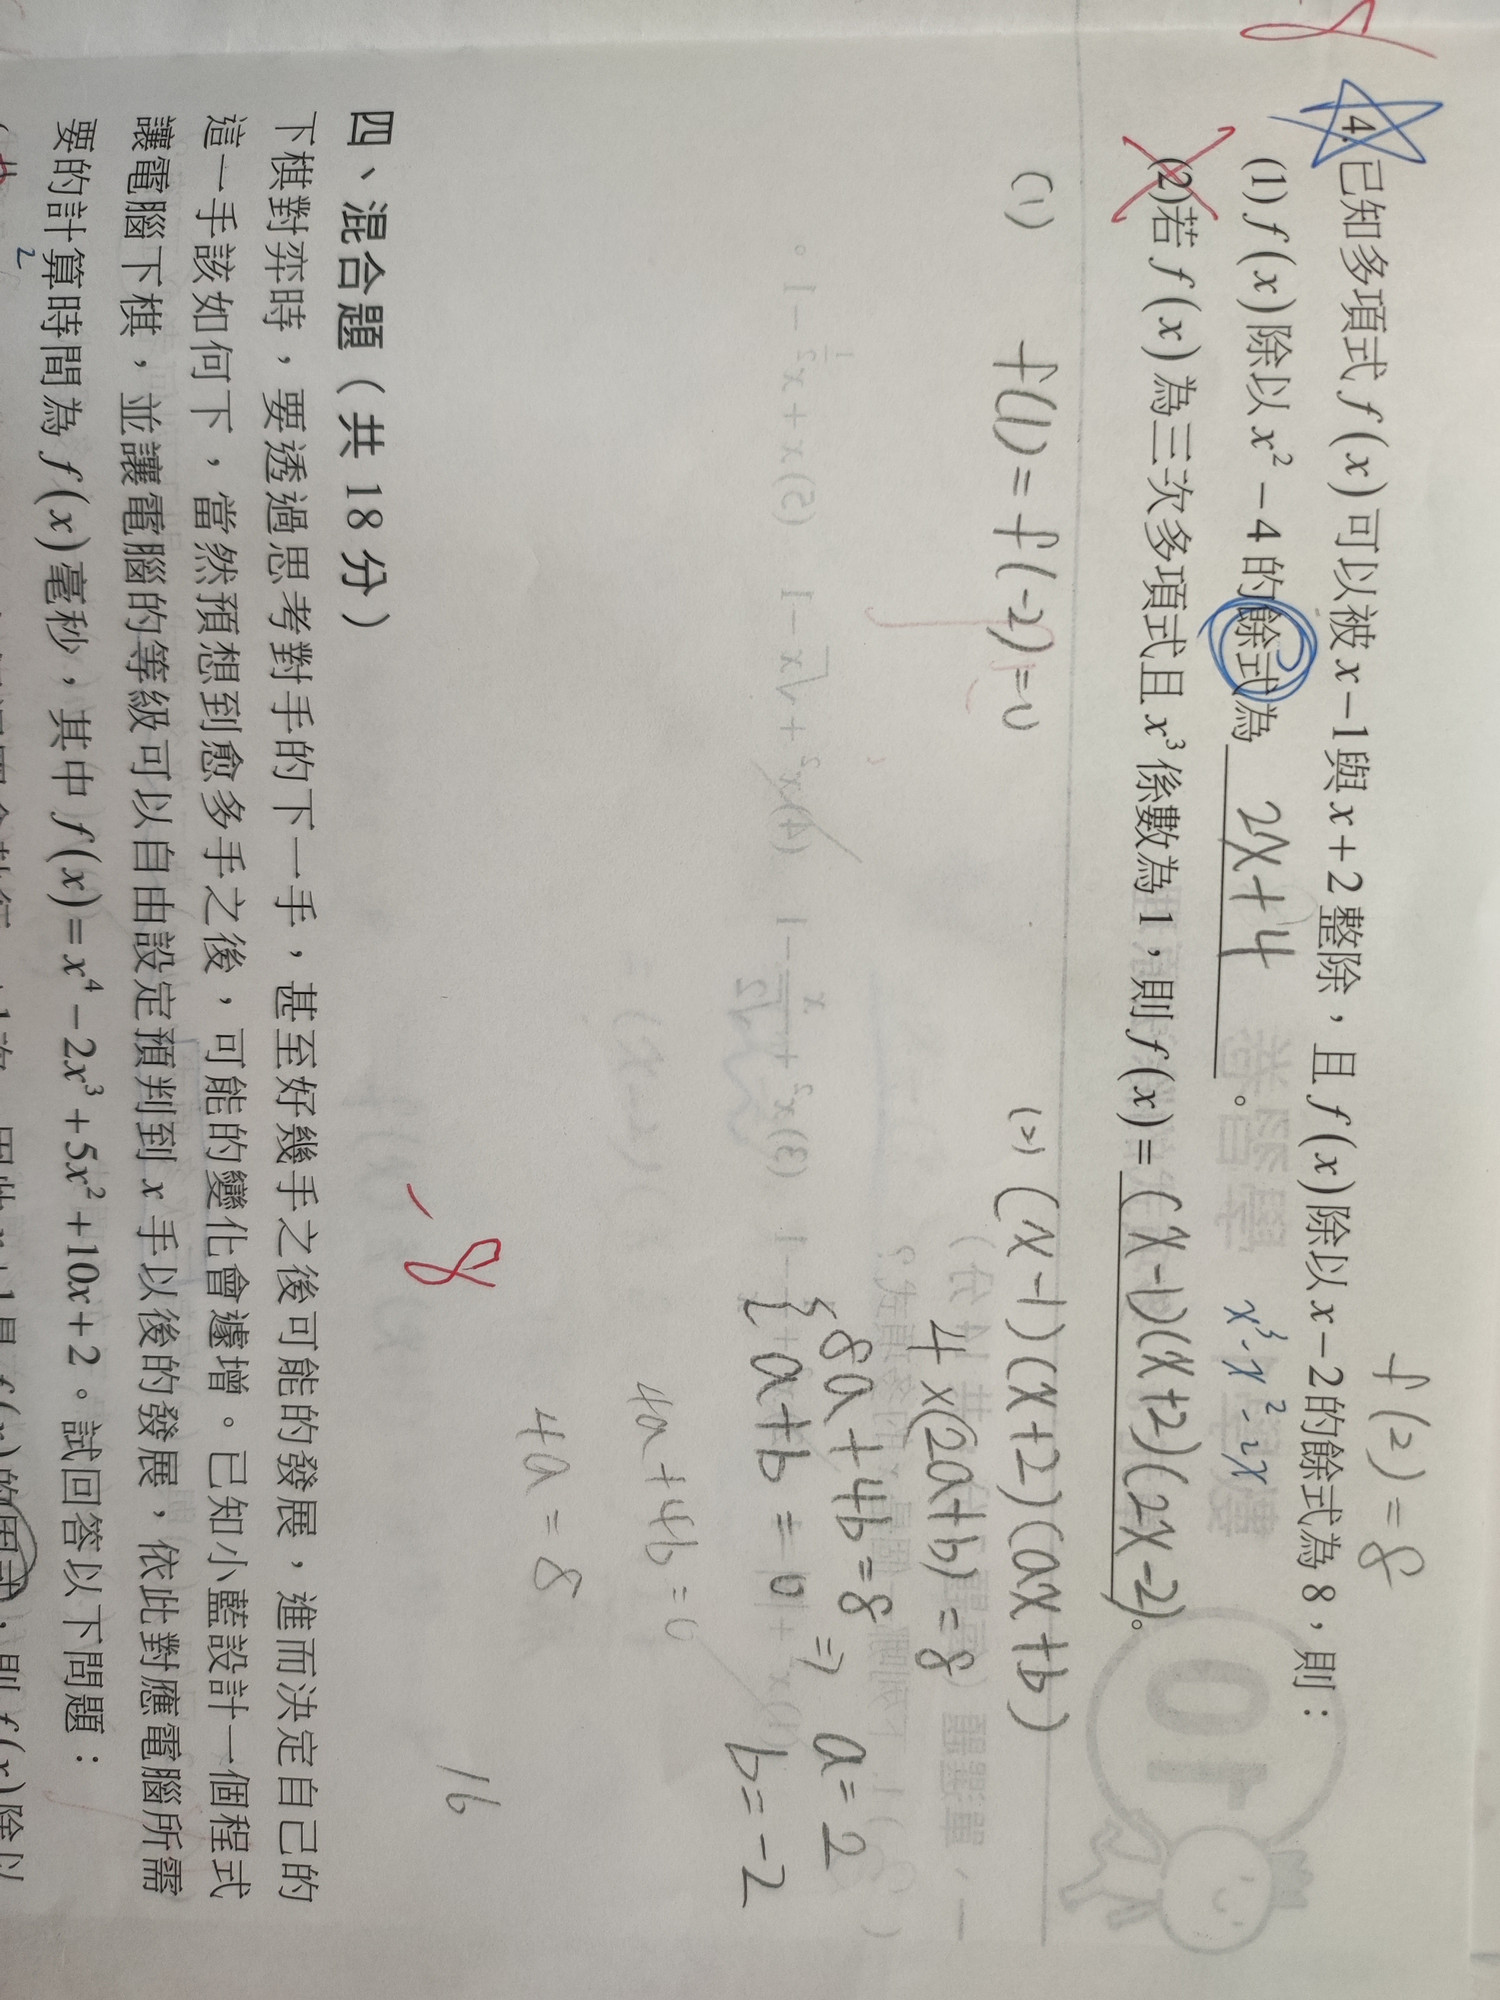 f(2)=8
4. 已知多項式 f(x) 可以被 x-1 與 x+2 整除，且 f(x) 除以 x-2 的餘式為 8，則：
(1) f(x) 除以 x²-4 的餘式為 2x+4 。
x³-x²-2x
(2)若 f(x) 為三次多項式且 x³ 係數為 1，則 f(x)= (x-1)(x+2)(2x-2)。
(1) f(1)=f(-2)=0
(2) (x-1)(x+2)(ax+b)
4x(2a+b)=8
{8a+4b=8
a+b=0
⇒ a=2
b=-2
4a+4b=0
4a=8
-8
16
四、混合題（共 18 分）
下棋對弈時，要透過思考對手的下一手，甚至好幾手之後可能的發展，進而決定自己的
這一手該如何下，當然預想到愈多手之後，可能的變化會遽增。已知小藍設計一個程式
讓電腦下棋，並讓電腦的等級可以自由設定預判到 x 手以後的發展，依此對應電腦所需
要的計算時間為 f(x) 毫秒，其中 f(x)=x⁴-2x³+5x²+10x+2。試回答以下問題：
2